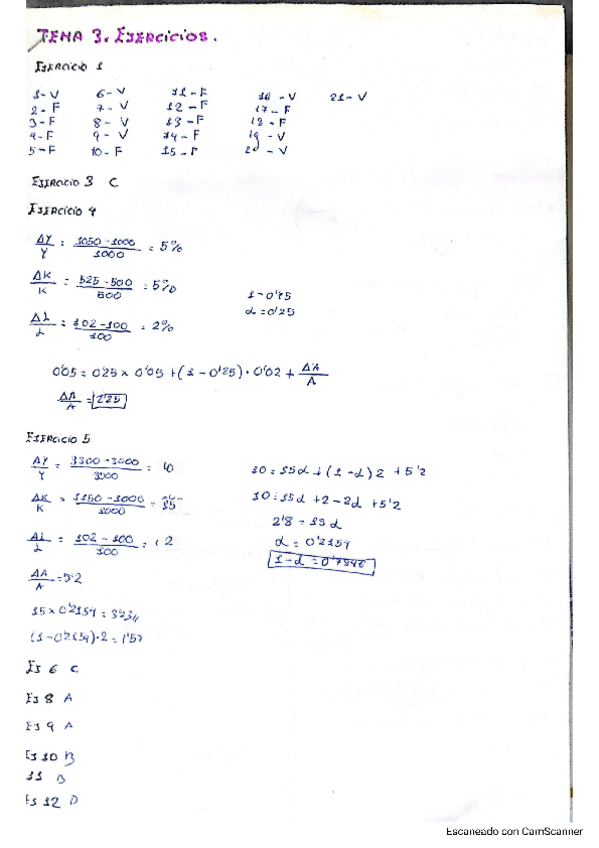 TEMA 3. EJERCICIOS.
EJERCICIO 1
1-V 6-V 11-F 16-V 21-V
2-F 7-V 12-F 17-F
3-F 8-V 13-F 18-F
4-F 9-V 14-F 19-V
5-F 10-F 15-F 20-V
EJERCICIO 3 C
EJERCICIO 4
ΔY/Y = 1050-1000/1000 = 5%
ΔK/K = 525-500/500 = 5%
1-0'75
α=0'25
ΔL/L = 102-100/100 = 2%
0'05 = 0'25 x 0'05 + (1-0'25)·0'02 + ΔA/A
ΔA/A = 2'25
EJERCICIO 5
ΔY/Y = 3300-3000/3000 = 10
10 = 15α + (1-α)2 + 5'2
ΔK/K = 1150-1000/1000 = 15
10 = 15α + 2 - 2α + 5'2
2'8 = 13α
ΔL/L = 102-100/100 = 2
α = 0'2154
1-α = 0'7846
ΔA/A = 5'2
15 x 0'2154 = 3'231
(1-0'2154)·2 = 1'57
EJ 6 C
EJ 8 A
EJ 9 A
EJ 10 B
11 B
EJ 12 D
Escaneado con CamScanner